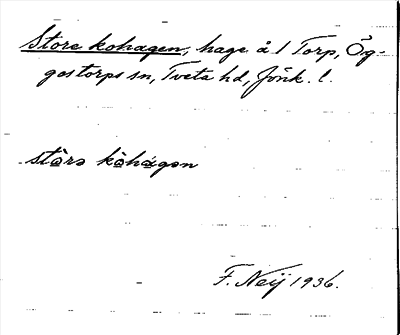 Store kohagen, hage å 1 Torp, Ög-
gestorps sn, Tveta hd, Jönk. l.
stòrə kòhágən
F. Neij 1936.